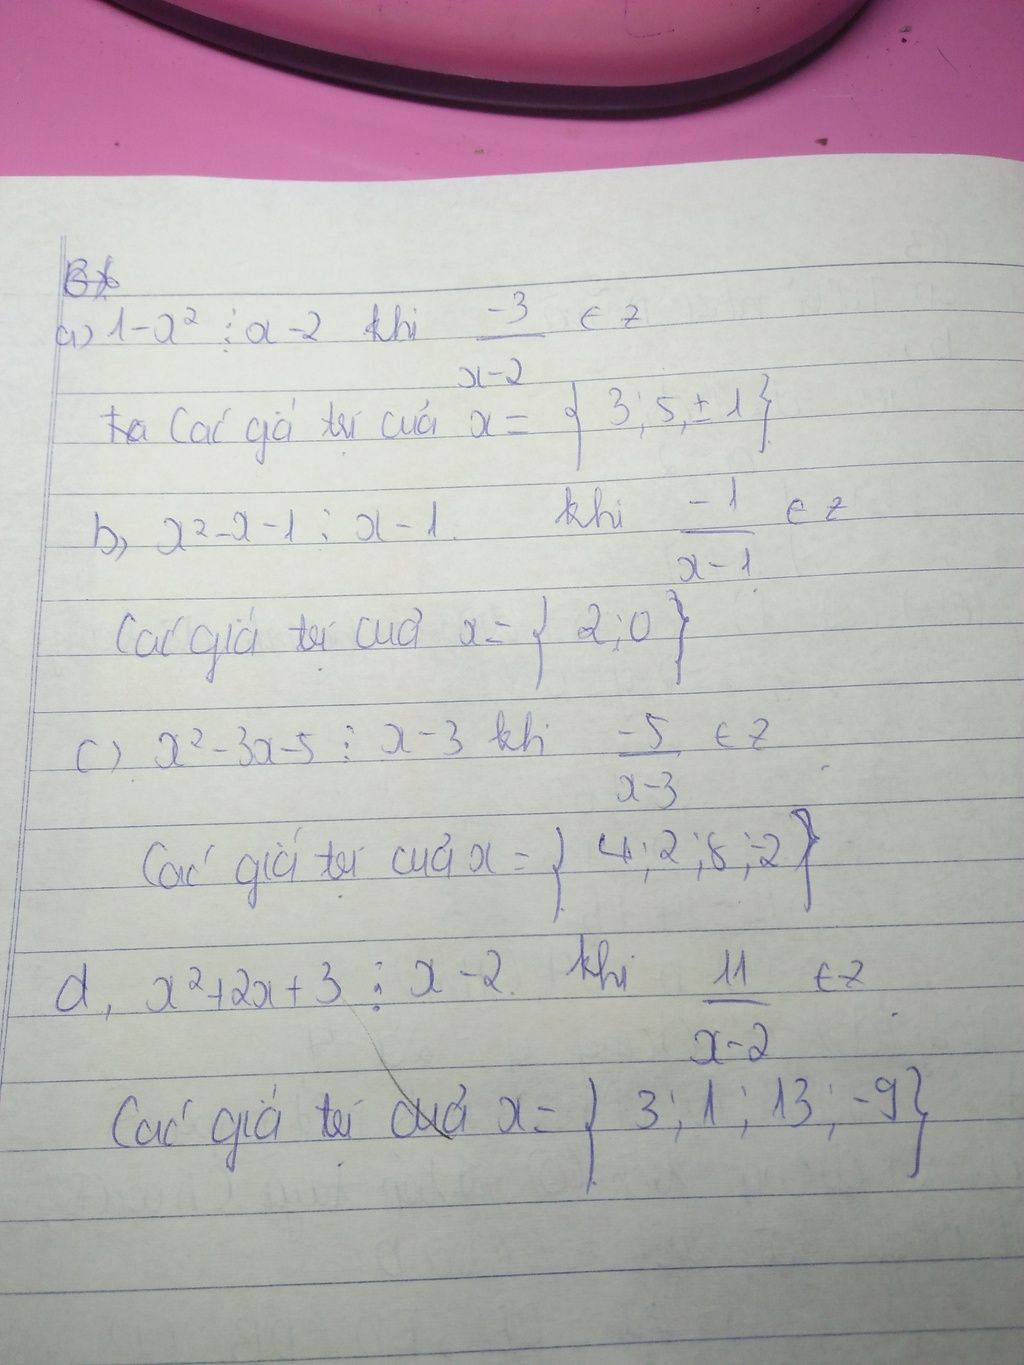 a) 1-x² ⋮ x-2 khi -3/x-2 ∈ Z
Các giá trị của x = { 3; 5, ±1}
b) x²-x-1 ⋮ x-1. khi -1/x-1 ∈ Z
Các giá trị của x = { 2; 0 }
c) x²-3x-5 ⋮ x-3 khi -5/x-3 ∈ Z
Các giá trị của x = { 4; 2; 8; -2}
d, x²+2x+3 ⋮ x-2. khi 11/x-2 ∈ Z
Các giá trị của x = { 3; 1; 13; -9}